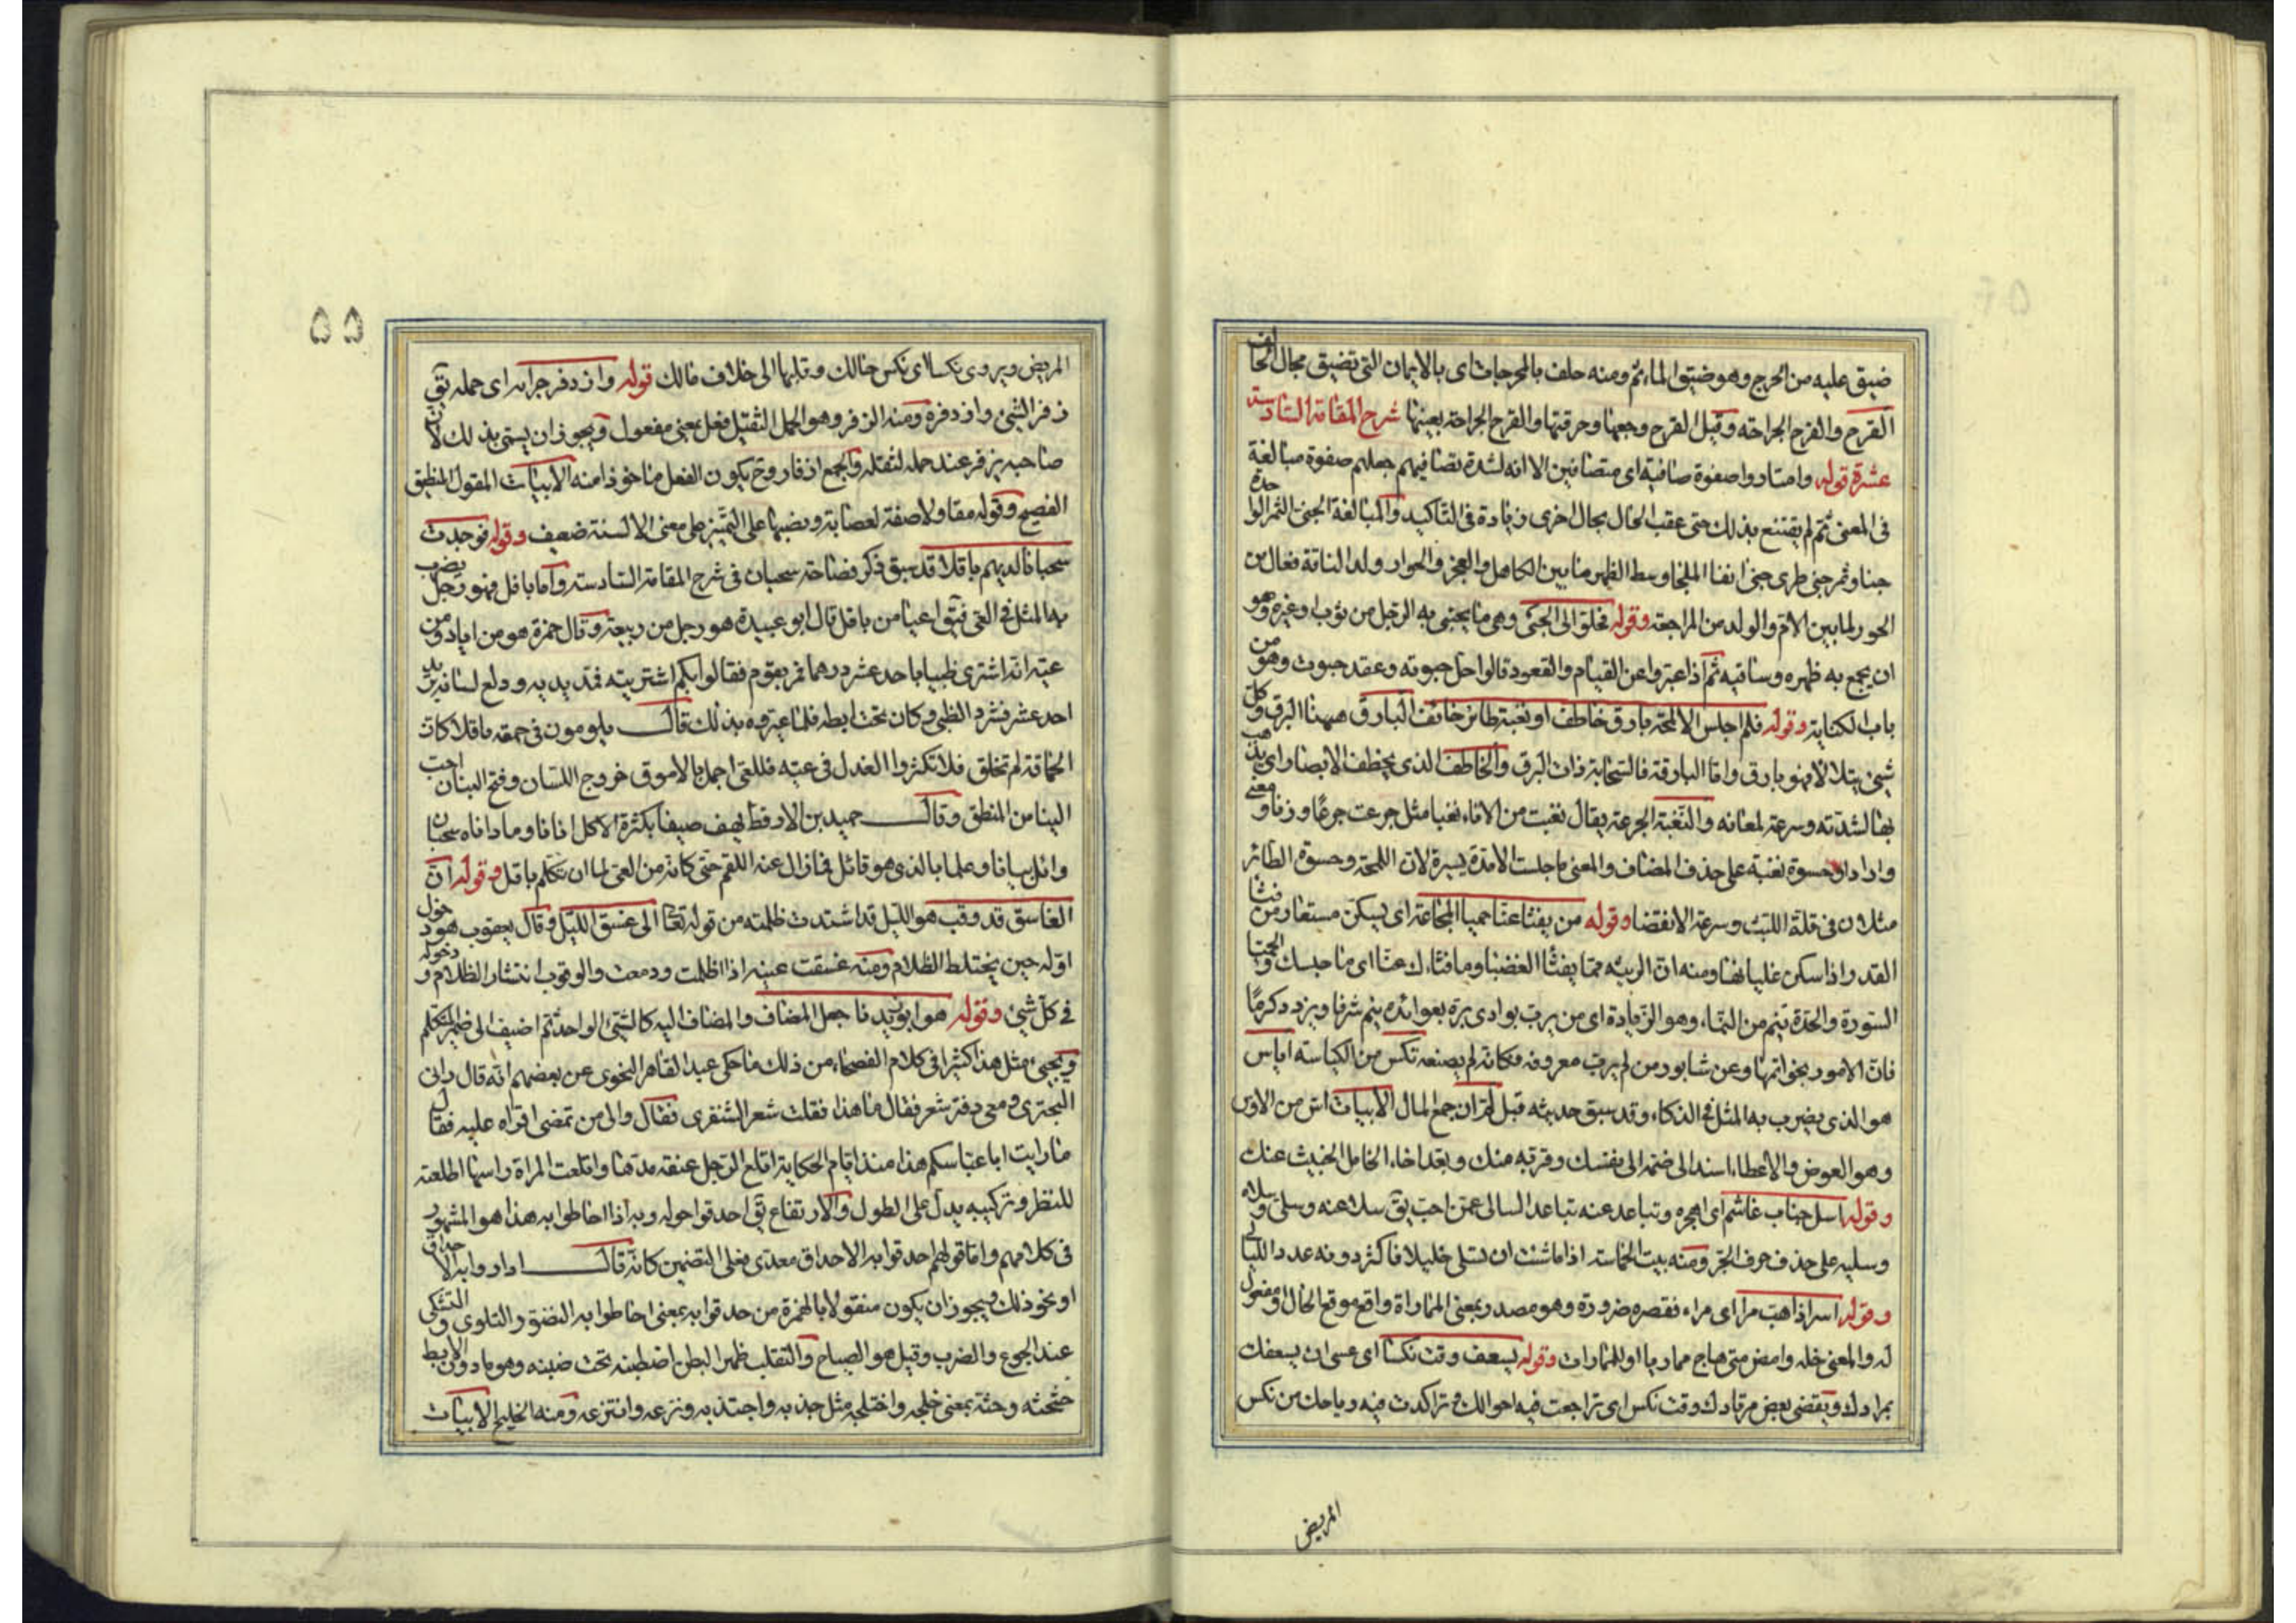 ضيق عليه من الحرج وهو ضيق المأثم ومنه حلف بالمحرجات اى بالايمان التى تضيق مجال الحالف
القرح والقرح الجراحة وقيل القرح وجعها وحرقتها والقرح الجراحة بعينها شرح المقامة السادسة
عشرة قوله وامتازوا صفوة صافية اى متصافين الا انه لشدة تصافيهم جعلهم صفوة مبالغة
فى المعنى ثم لم يقتنع بذلك حتى عقب الحال بحال اخرى زيادة فى التاكيد والمبالغة الجنى الثمر الوا حدة
جناة وثمر جنى طرى جنى انفا الملحا وسط الظهر ما بين الكاهل والعجز والحوار ولد الناقة فعال من
الحور لما بين الام والولد من المراجعة وقوله فحلوا لى الحبى وهى ما يحتبى به الرجل من ثوب او غيره وهو
ان يجمع به ظهره وساقيه ثم اذا عبروا عن القيام والقعود قالوا حل حبوته وعقد حبوته وهو من
باب الكناية وقوله فلم اجلس الا لمحة بارق خاطف او نغبة طائر خائف البارق ههنا البرق وكل
شىء يتلألأ فهو بارق واما البارقة فالسحابة ذات البرق والخاطف الذى يخطف الابصار اى يذهب
بها لشدته وسرعة لمعانه والنغبة الجرعة يقال نغبت من الاناء نغبا مثل جرعت جرعا وزنا ومعنى
واراد او حسوة نغبة على حذف المضاف والمعنى ما جلست الا مدة يسيرة لان اللمحة وحسوة الطائر
مثلان فى قلة اللبث وسرعة الانقضا وقوله من يفثأ عنا حميا المجاعة اى يسكن مستعار من فثأ
القدر اذا سكن غليانها ومنه ان الرثيئة مما يفثأ الغضب وما فثاءك عنا اى ما حبسك والحميا
السورة والحدة ينم من النماء وهو الزيادة اى من يرب بوادى بره بعوائده ينم شرفا ويزدد كرما
فان الامور بخواتمها وعن شابور من لم يرب معروفه فكانه لم يصنعه تكس من الكياسة اياس
هو الذى يضرب به المثل فى الذكاء وقد سبق حديثه قبل لم ان جمع المال الابيات اس من الاوس
وهو العوض والاعطاء اسند الى ضمه الى نفسك وقربه منك وبعد اخاء الخامل الخبيث عنك
وقوله اسل جناب غاشم اى اهجره وتباعد عنه تباعد السالى عمن احب يق سلا عنه وسلى وسلاه
وسليه على حذف حرف الجر ومنه بيت الحماسة اذا ما شئت ان تسلى خليلا فاكثر دونه عدد الليالى
وقوله اسر اذا هب مرا اى مراء فقصره ضرورة وهو مصدر بمعنى المماراة واقع موقع الحال او مفعول
له والمعنى خله وامض متى هاج مماريا او للمارات وقوله يسعف وقت نكسا اى عسى ان يسعفك
بمرادك ويقضى بعض مرتادك وقت نكس اى تراجعت فيه احوالك وتراكدت فيه رياحك من نكس
المريض
٥٥
المريض ويروى نكسا اى نكس حالك وقلبها الى خلاف ذالك قوله وازدفر جرابه اى حمله يق
زفر الشىء وازدفره ومنه الزفر وهو الحمل الثقيل فعل بمعنى مفعول ويجوز ان يسمى بذلك لان
صاحبه يزفر عند حمله لثقله والجمع ازفار وح يكون الفعل ماخوذا منه الابيات المقول المنطيق
الفصيح وقوله مقاولا صفة لعصابة ونصبها على التمييز على معنى الالسنة ضعيف وقوله فوجدت
سحبانا لديهم باقلا قد سبق ذكر فصاحة سحبان فى شرح المقامة السادسة واما باقل فهو رجل يضرب
به المثل فى العى فيق اعيا من باقل قال ابو عبيدة هو رجل من ربيعة وقال حمزة هو من اياد ومن
عيه انه اشترى ظبيا باحد عشر درهما فمر بقوم فقالوا بكم اشتريته فمد يديه ودلع لسانه يريد
احد عشر فشرد الظبى وكان تحت ابطه فلما عيروه بذلك قال يلومون فى حمقه باقلا كان
الحماقة لم تخلق فلا تكثروا العذل فى عيه فللعى اجمل بالاموق خروج اللسان وفتح البنان احب
الينا من المنطق وقال حميد بن الارقط يهف ضيفا بكثرة الاكل اتانا وما داناه سحبان
وائل بيانا وعلما بالذى هو قائل فما زال عنه اللقم حتى كانه من العى لما ان تكلم باقل وقوله ان
الغاسق قد وقب هو الليل قد اشتدت ظلمته من قوله تعا الى غسق الليل وقال يعقوب هو دخول
اوله حين يختلط الظلام ومنه غسقت عينه اذا اظلمت ودمعت والوقوب انتشار الظلام ودخوله
فى كل شىء وقوله هو ابو زيدنا جعل المضاف والمضاف اليه كالشىء الواحد ثم اضيف الى ضمير المتكلم
ويجىء مثل هذا كثيرا فى كلام الفصحاء من ذلك ما حكى عبد القاهر النحوى عن بعضهم انه قال رانى
البحترى ومعى دفتر شعر فقال ما هذا فقلت شعر الشنفرى فقال والى من تمضى اقراه عليه فقال
ما رايت ابا عباسكم هذا منذ ايام الحكاية اتلع الرجل عنقه مدها واتلعت المراة راسها اطلعته
للنظر وتركيبه يدل على الطول والارتفاع يق احدقوا حوله وبه اذا احاطوا به هذا هو المشهور
فى كلامهم واما قولهم احدقوا به الاحداق معدى فعلى التضمين كانه قال اداروا به الاحداق
او نحو ذلك ويجوز ان يكون منقولا بالهمزة من حدقوا به بمعنى احاطوا به التضور التلوى والتشكى
عند الجوع والضرب وقيل هو الصياح والتقلب ظهر البطن اضطبنه تحت ضبنه وهو ما دون الابط
حثحثه وحثه بمعنى خلجه واختلجه مثل جذبه واجتذبه ونزعه وانتزعه ومنه الخليج الابيات